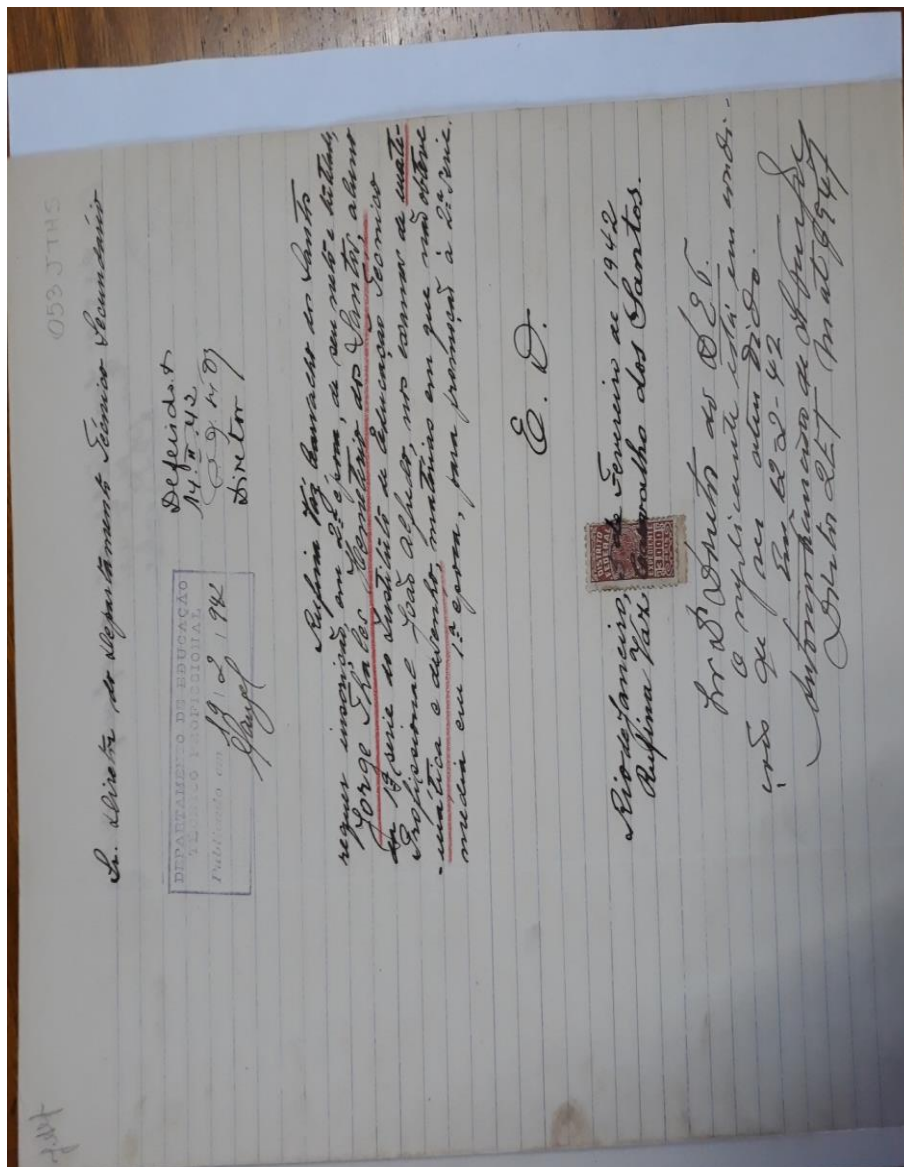 053 JTHS
Sr. Diretor do Departamento Técnico Secundário
DEPARTAMENTO DE EDUCAÇÃO
TECNICO PROFISSIONAL
Publicado em 19 / 2 / 942
Rangel
Deferido.
14.II.42
Diretor
Rufina Vaz Carvalho dos Santos
requer inscrição, em 2ª época, de seu neto e tutelado,
Jorge Thales Hemeterio dos Santos, aluno
da 1ª serie do Instituto de Educação Tecnico
Profissional João Alfredo, nos exames de mate-
-mática e desenho, matérias em que não obteve
media em 1ª época, para promoção à 2ª serie.
E. D.
Rio de Janeiro, de Fevereiro de 1942
Rufina Vaz Carvalho dos Santos.
DISTRITO
FEDERAL
EXPEDIENTE
Sr Dr Diretor do DET.
O suplicante está em condi-
ções de ser atendido.
Em 12-2-42
Diretor 2ET mat 9947